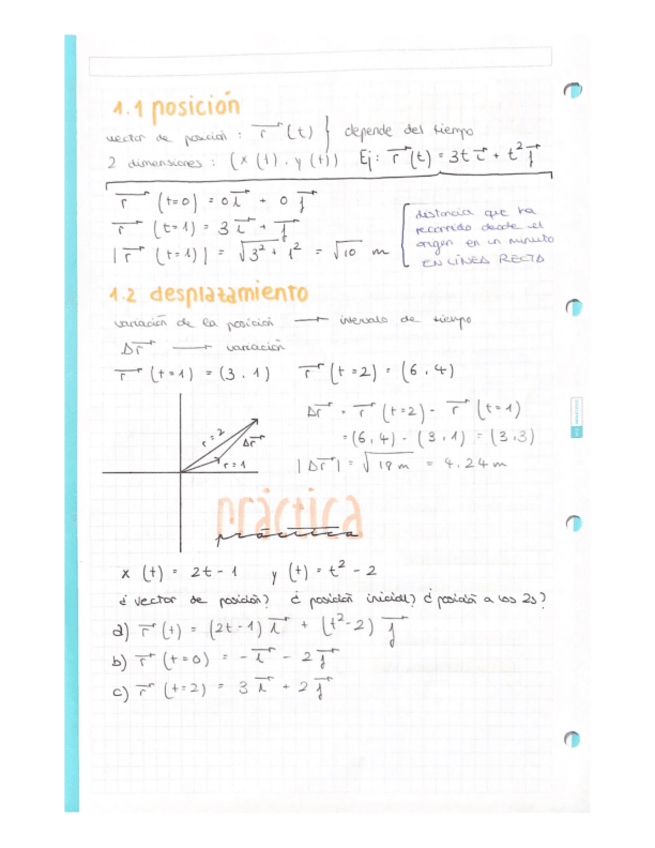 1.1 posición
vector de posición : r⃗ (t) } depende del tiempo
2 dimensiones : (x (t) , y (t)) Ej: r⃗ (t) = 3t i⃗ + t² j⃗
r⃗ (t=0) = 0 i⃗ + 0 j⃗
r⃗ (t=1) = 3 i⃗ + j⃗
|r⃗ (t=1)| = √3² + 1² = √10 m
distancia que ha
recorrido desde el
origen en un minuto
EN LÍNEA RECTA
1.2 desplazamiento
variación de la posición → intervalo de tiempo
Δr⃗ → variación
r⃗ (t=1) = (3 , 1) r⃗ (t=2) = (6 , 4)
t=2
Δr⃗
t=1
Δr⃗ = r⃗ (t=2) - r⃗ (t=1)
= (6, 4) - (3, 1) = (3, 3)
|Δr⃗| = √18 m = 4.24 m
práctica
práctica
x (t) = 2t - 1 y (t) = t² - 2
¿ vector de posición? ¿ posición inicial? ¿ posición a los 2s?
a) r⃗ (t) = (2t - 1) i⃗ + (t² - 2) j⃗
b) r⃗ (t=0) = - i⃗ - 2 j⃗
c) r⃗ (t=2) = 3 i⃗ + 2 j⃗